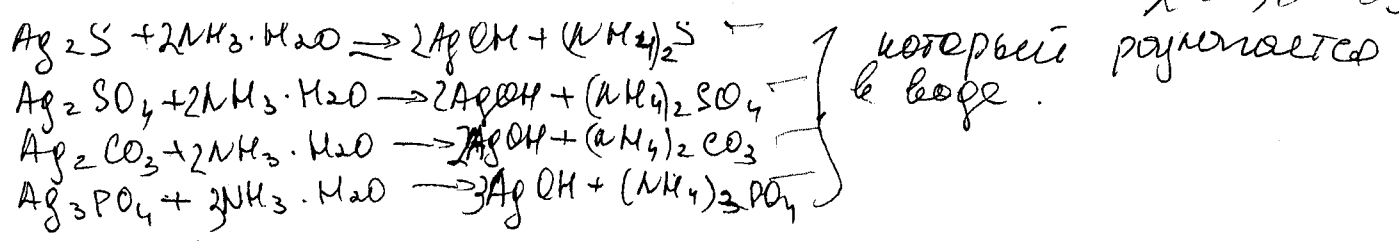 Ag₂S + 2NH₃·H₂O ⇌ 2AgOH + (NH₄)₂S
Ag₂SO₄ + 2NH₃·H₂O → 2AgOH + (NH₄)₂SO₄
Ag₂CO₃ + 2NH₃·H₂O → 2AgOH + (NH₄)₂CO₃
Ag₃PO₄ + 3NH₃·H₂O → 3AgOH + (NH₄)₃PO₄
который разлагается
в воде.